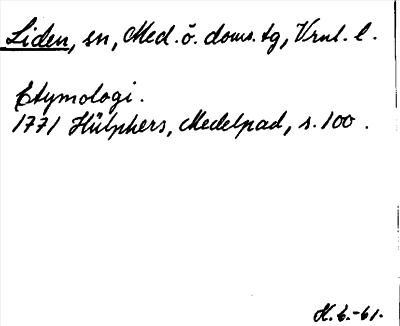 Liden, sn, Med. ö. doms. tg, Vrnl. l.
Etymologi.
1771 Hülphers, Medelpad, s. 100.
H.t.-61.